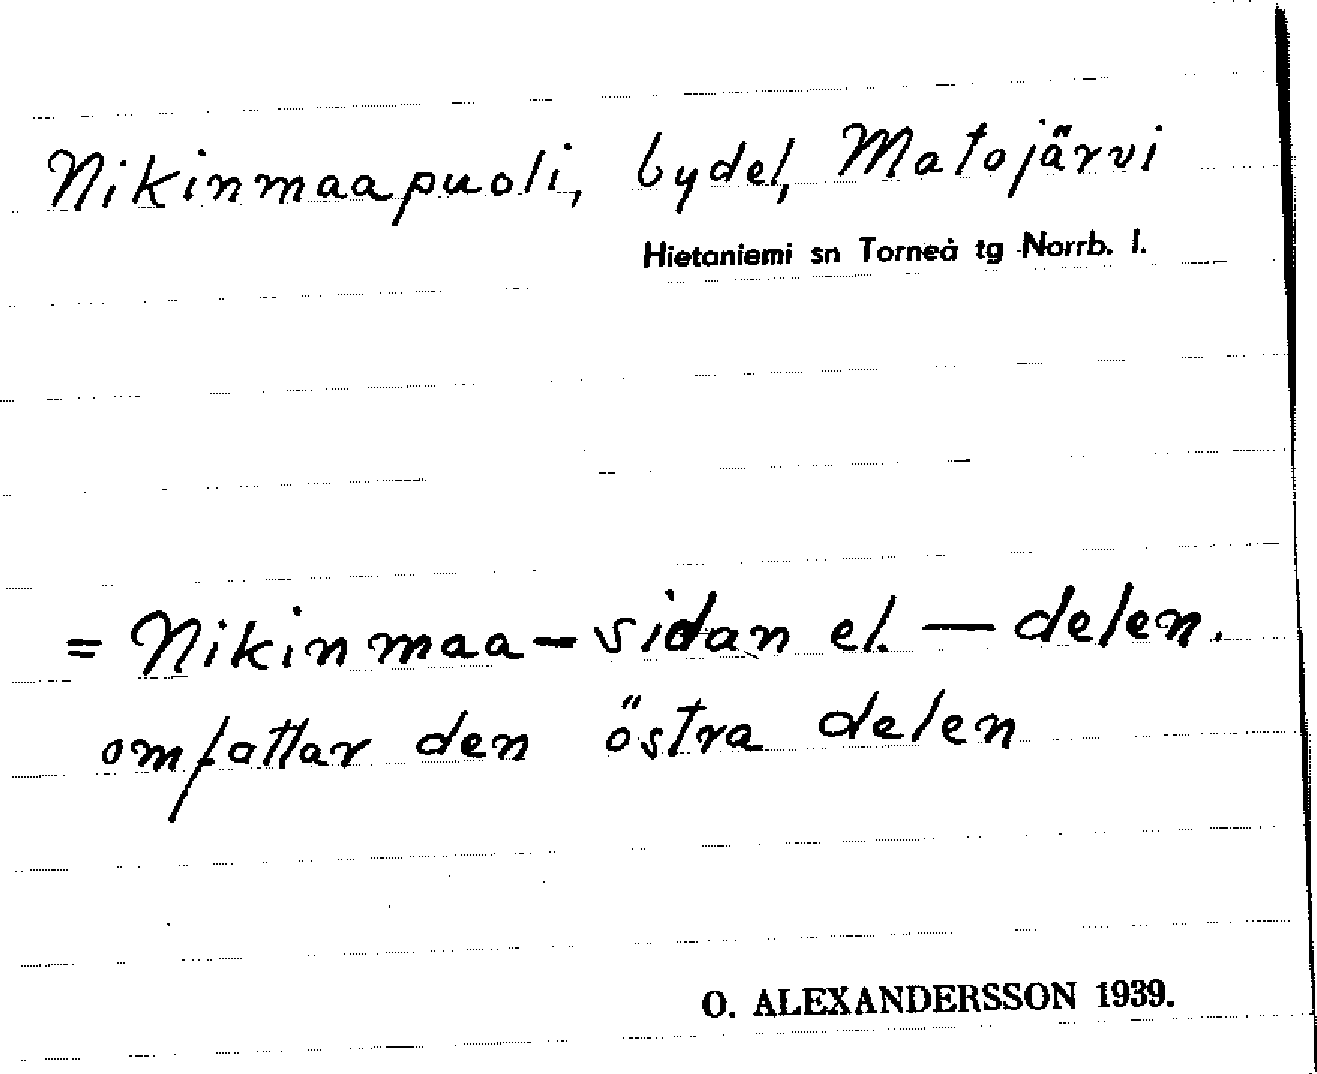 Nikinmaapuoli, bydel, Matojärvi
Hietaniemi sn Torneå tg Norrb. l.
= Nikinmaa-sidan el. — delen.
omfattar den östra delen
O. ALEXANDERSSON 1939.